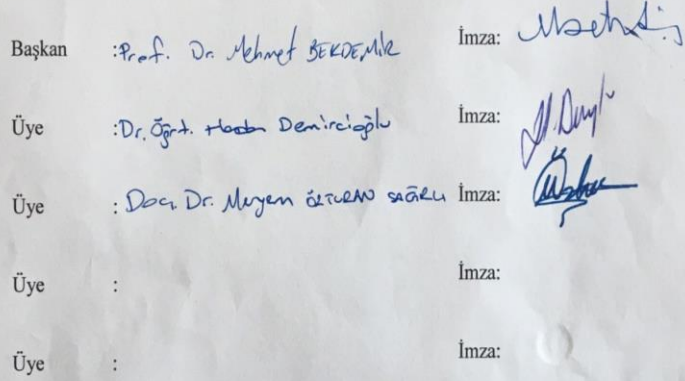 Başkan :Prof. Dr. Mehmet BEKDEMİR İmza:
Üye :Dr. Öğrt. Demircioğlu İmza:
Üye : Doç. Dr. Meryem ÖZTURAN SAĞIRLI İmza:
Üye : İmza:
Üye : İmza: